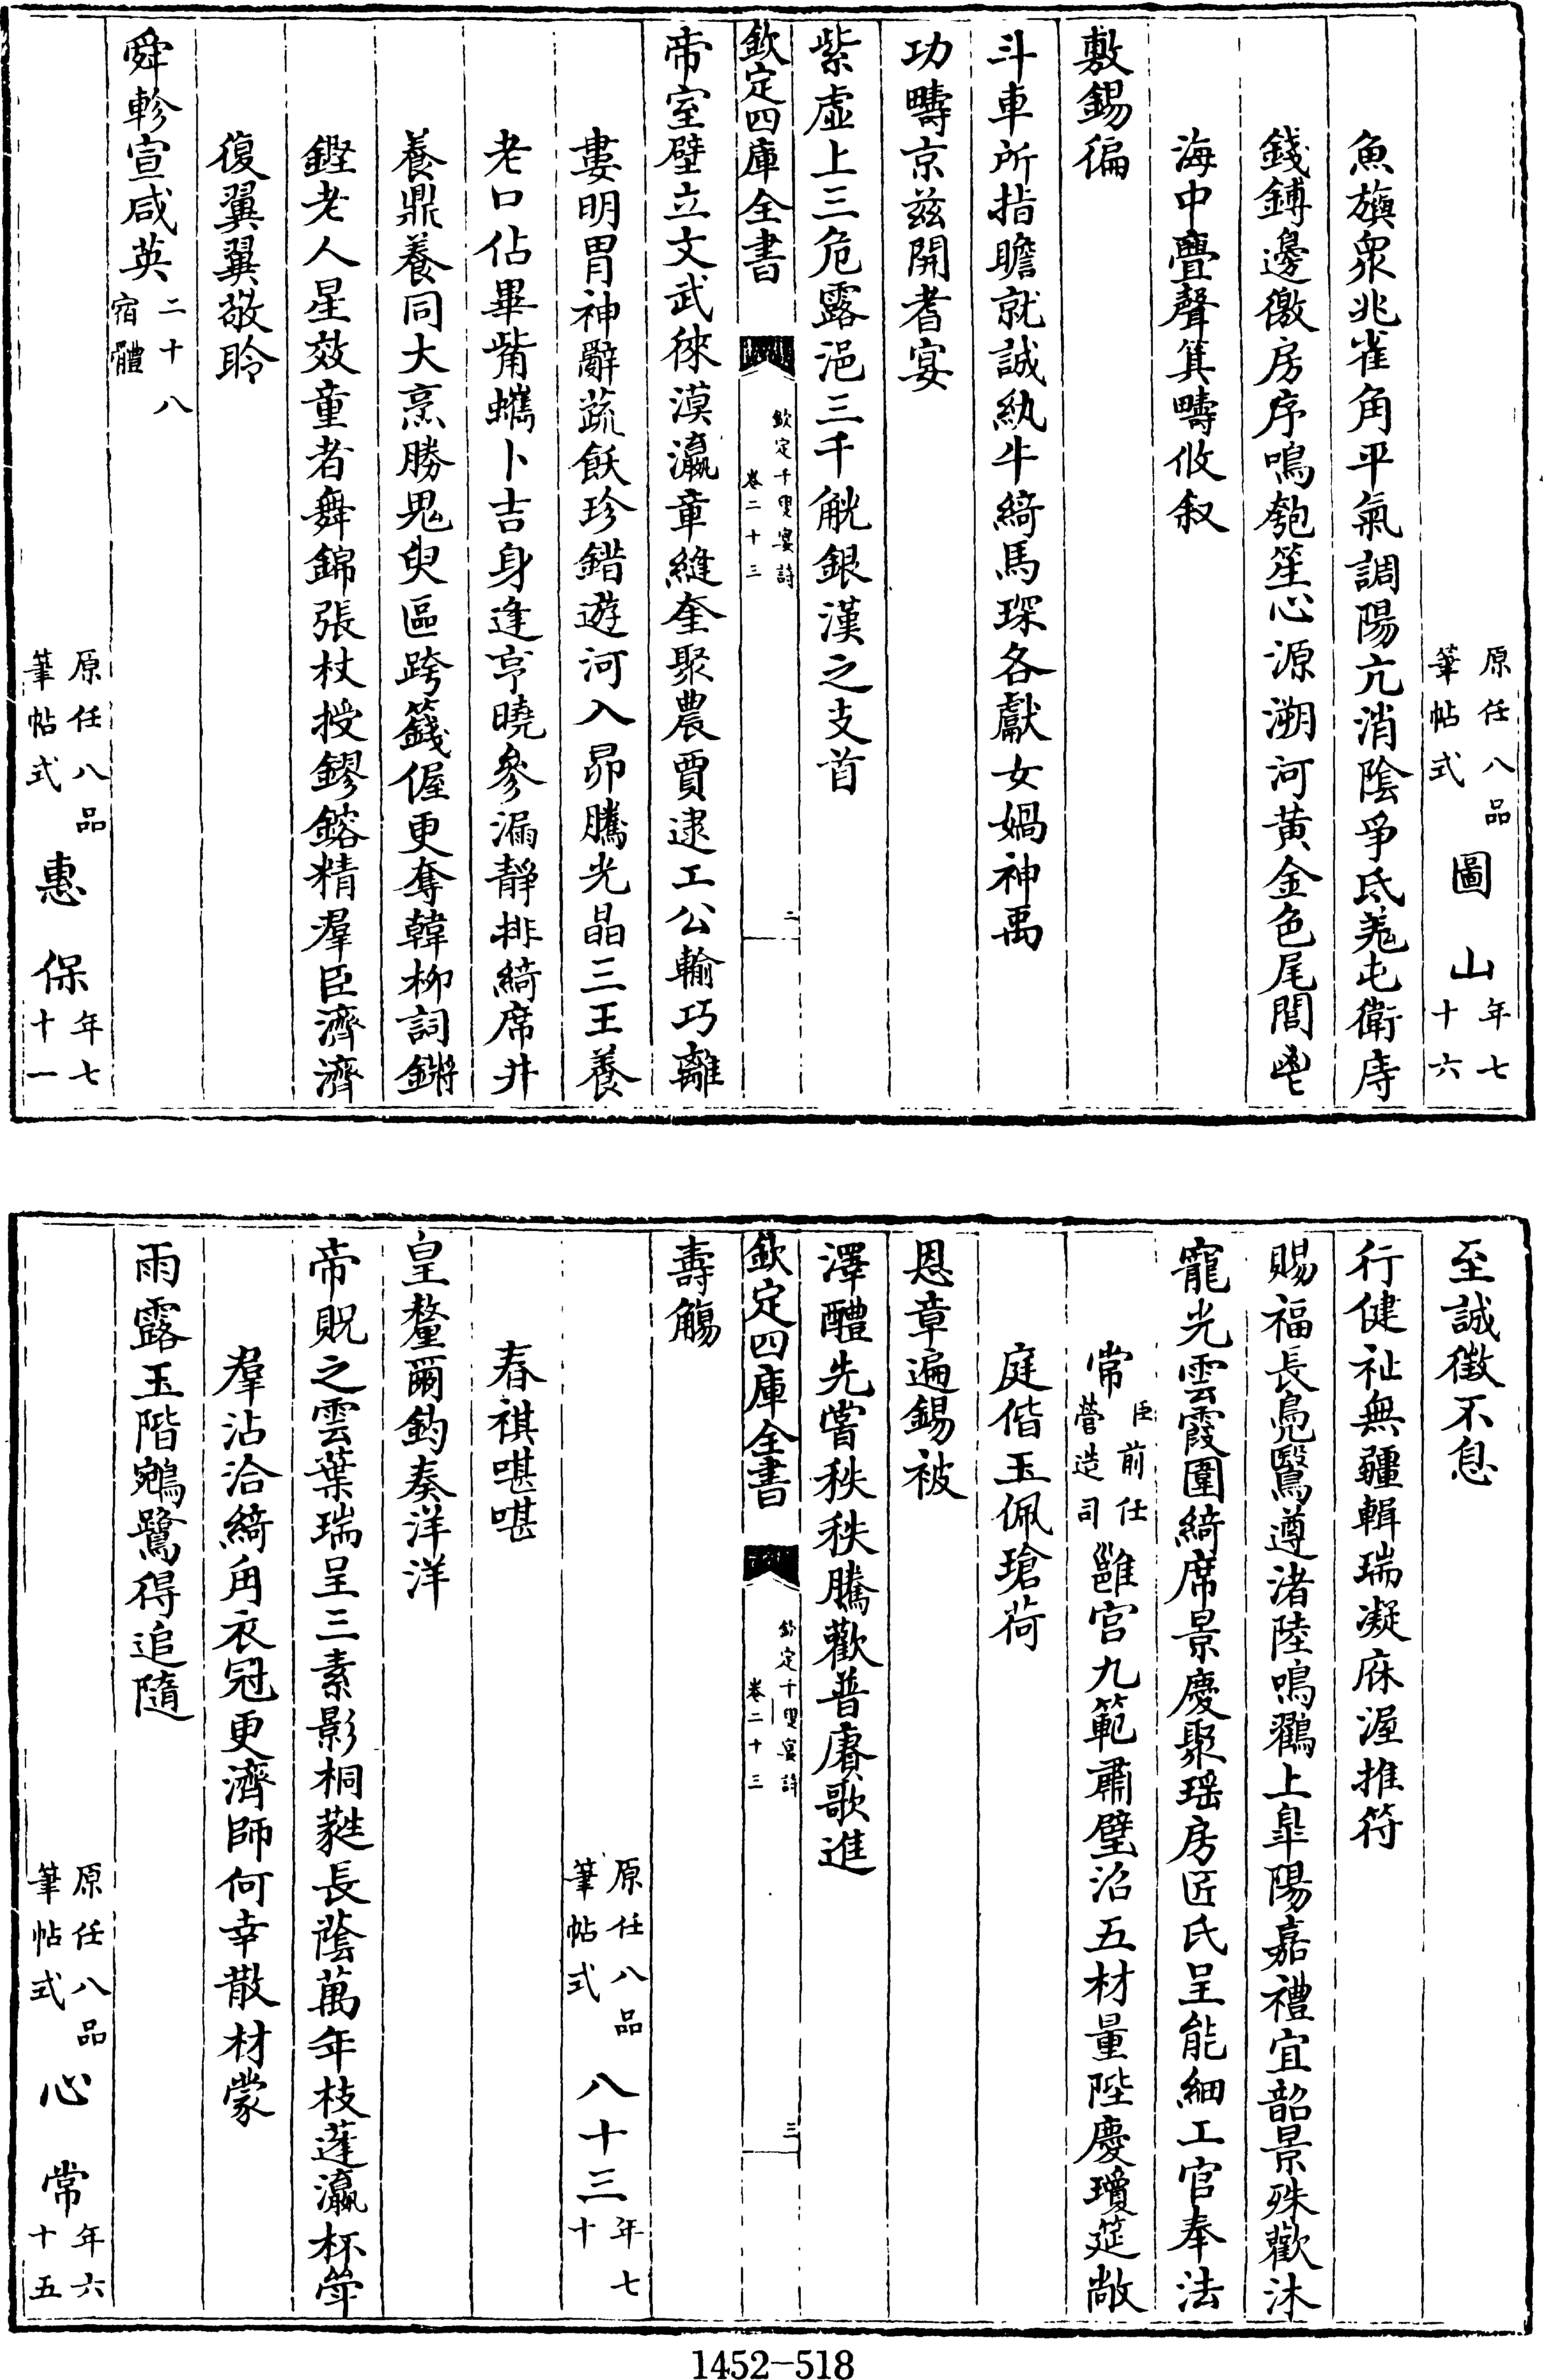 原任八品筆帖式圖山年七十六
魚旟衆兆雀角平氣調陽亢消陰爭氐羗屯衛庤
錢鎛邊徼房序鳴匏笙心源溯河黄金色尾閭
海中疊聲箕疇攸叙
敷錫徧
斗車所指瞻就誠紈牛綺馬琛各獻女媧神禹
功疇京兹開耆宴
紫虛上三危露浥三千觥銀漢之支首
欽定四庫全書
欽定千叟宴詩
卷二十三
二
帝室壁立文武徠漠瀛章縫奎聚農賈逮工公輸巧離
婁明胃神辭蔬飫珍錯遊河入昴騰光晶三王養
老口佔畢觜蠵卜吉身逢亨曉參漏靜排綺席井
養鼎養同大烹勝鬼臾區跨籛偓更奪韓柳詞鏘
鏗老人星效童耆舞錦張杖授鏐鎔精羣臣濟濟
復翼翼敬聆
舜軫宣咸英二十八宿體
原任八品筆帖式惠保年七十一
至誠徵不息
行健祉無疆輯瑞凝庥渥推符
賜福長鳧鷖遵渚陸鳴鸛上臯陽嘉禮宜韶景殊歡沐
寵光雲霞圍綺席景慶聚瑶房匠氏呈能細工官奉法
常臣前任營造司雝宫九範肅璧沼五材量陛慶瓊筵敞
庭偕玉佩瑲荷
恩章遍錫被
澤醴先嘗秩秩騰歡普賡歌進
欽定四庫全書
欽定千叟宴詩
卷二十三
三
壽觴
原任八品筆帖式八十三年七十
春祺啿啿
皇釐爾鈞奏洋洋
帝貺之雲葉瑞呈三素影桐蕤長蔭萬年枝蓬瀛杯斝
羣沾洽綺角衣冠更濟師何幸散材蒙
雨露玉階鵷鷺得追隨
原任八品筆帖式心常年六十五
1452-518